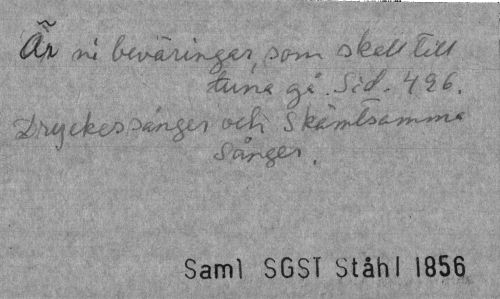 Är ni beväringar, som skall till
tuna gå. Sid. 426.
Dryckessånger och Skämtsamma
Sånger.
Saml SGST Ståhl 1856